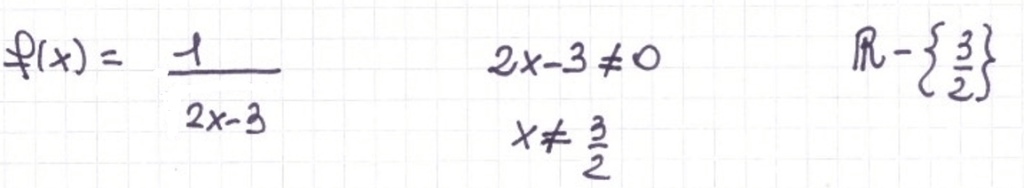 f(x) = 1/(2x-3)
2x-3≠0
x≠ 3/2
ℝ-{3/2}